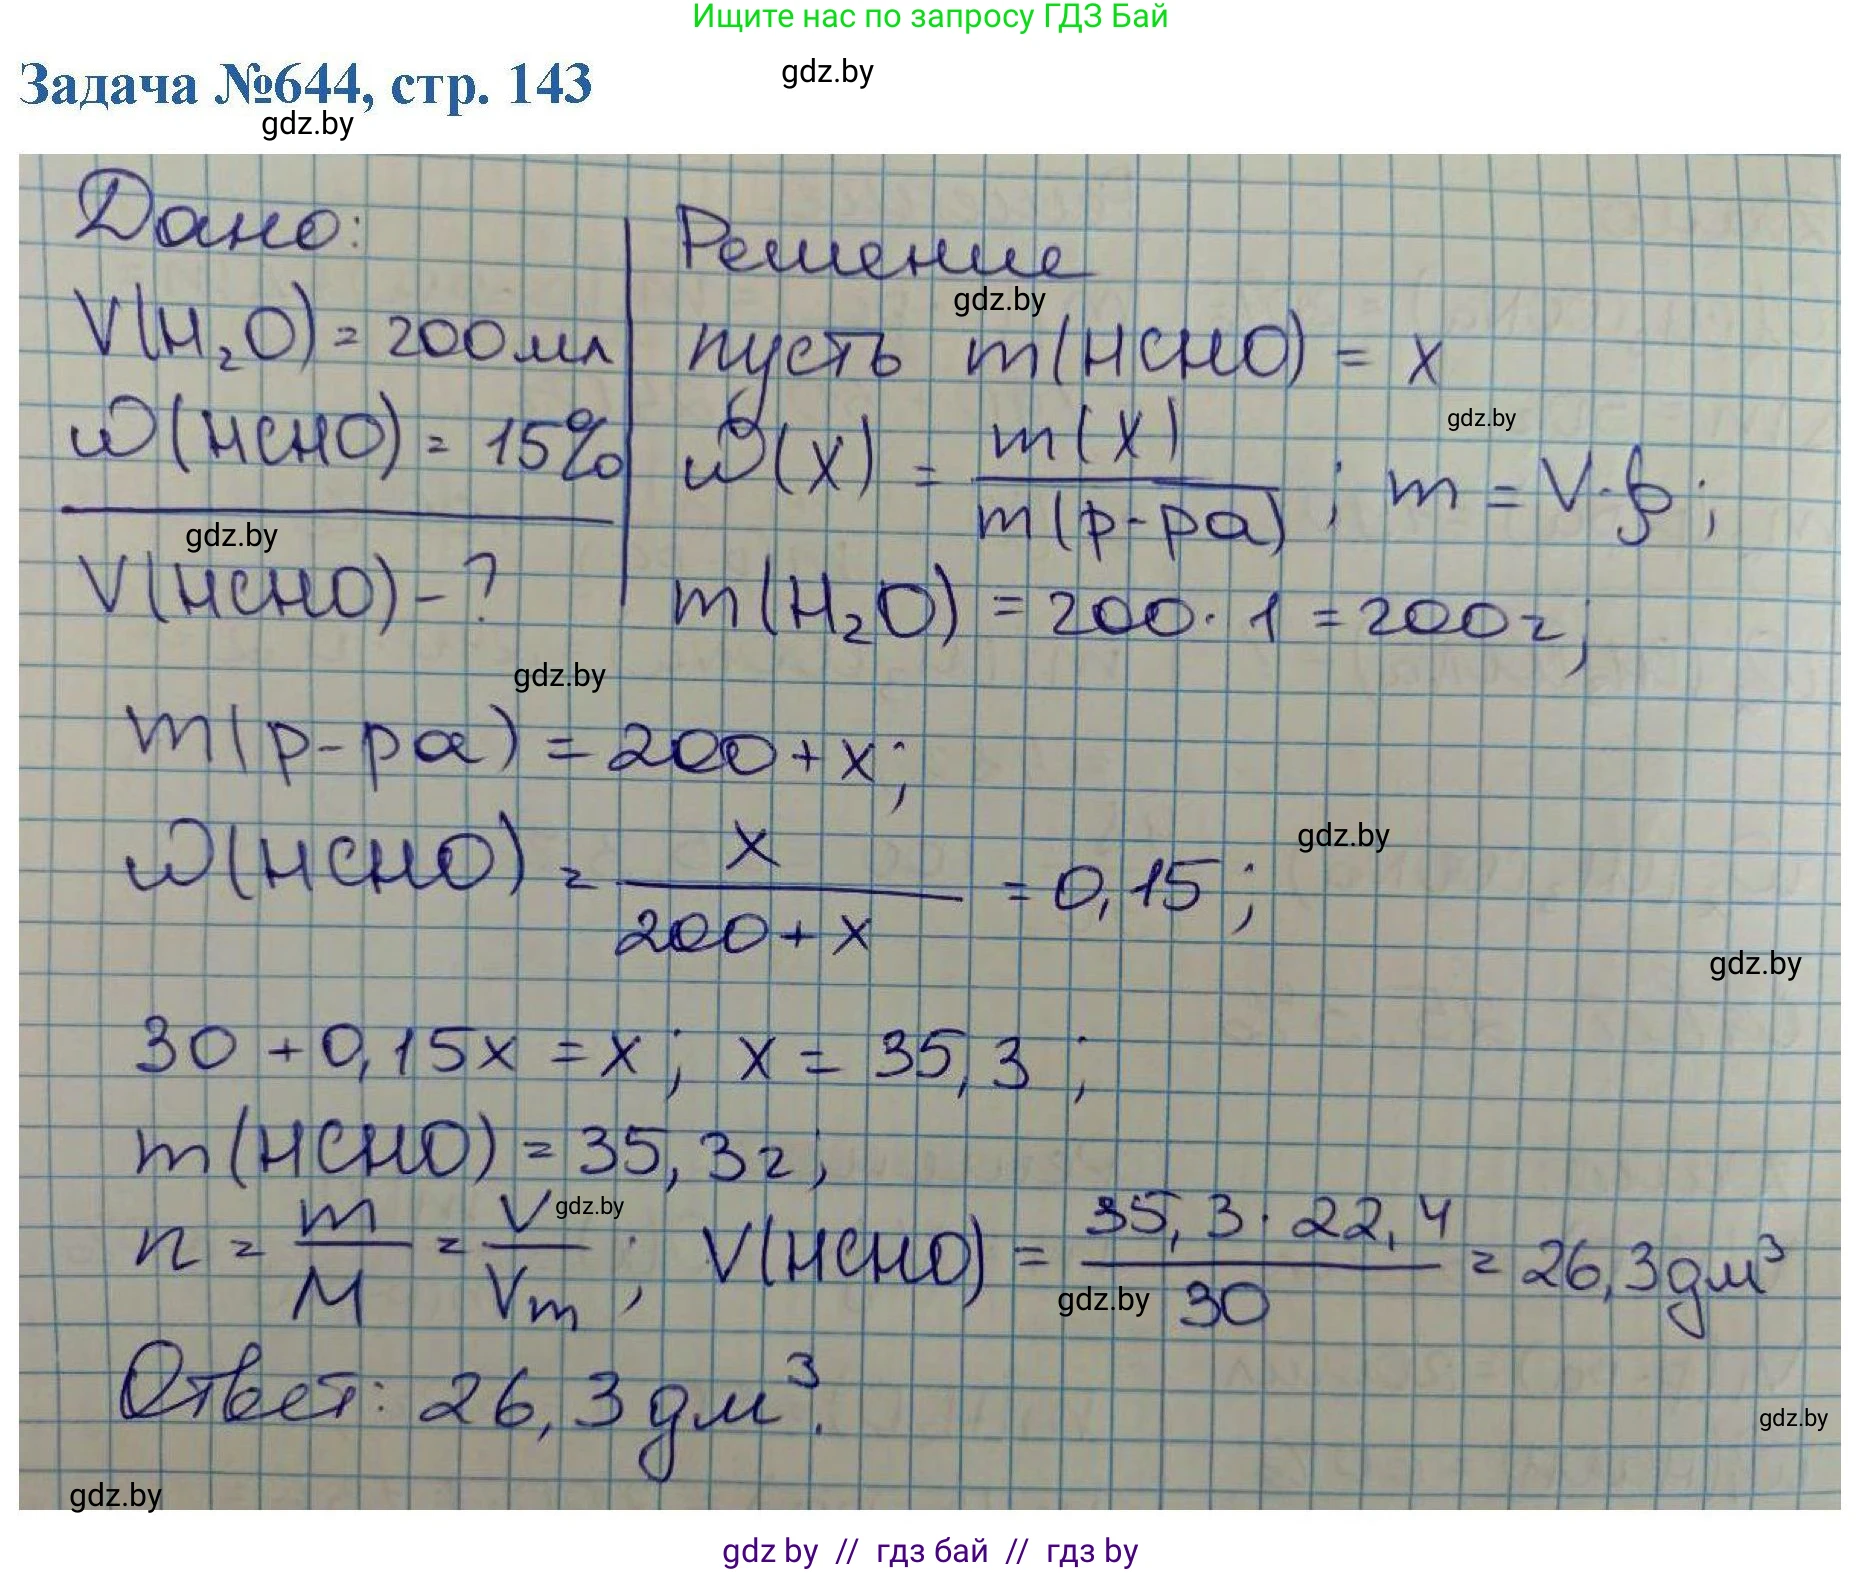 Ищите нас по запросу ГДЗ Бай
Задача №644, стр. 143
gdz.by
gdz.by
Дано:
V(H₂O) = 200 мл
ω(HCHO) = 15%
gdz.by
V(HCHO) - ?
Решение
gdz.by
пусть m(HCHO) = x
gdz.by
ω(X) = m(X) / m(р-ра) ; m = V·ρ ;
m(H₂O) = 200 · 1 = 200 г;
gdz.by
m(р-ра) = 200 + x;
gdz.by
ω(HCHO) = x / 200 + x = 0,15 ;
gdz.by
30 + 0,15x = x ; x = 35,3 ;
m(HCHO) = 35,3 г;
gdz.by
n = m / M = V / Vm ; V(HCHO) = 35,3 · 22,4 / 30 = 26,3 дм³
gdz.by
Ответ: 26,3 дм³.
gdz.by
gdz.by
gdz by // гдз бай // гдз by